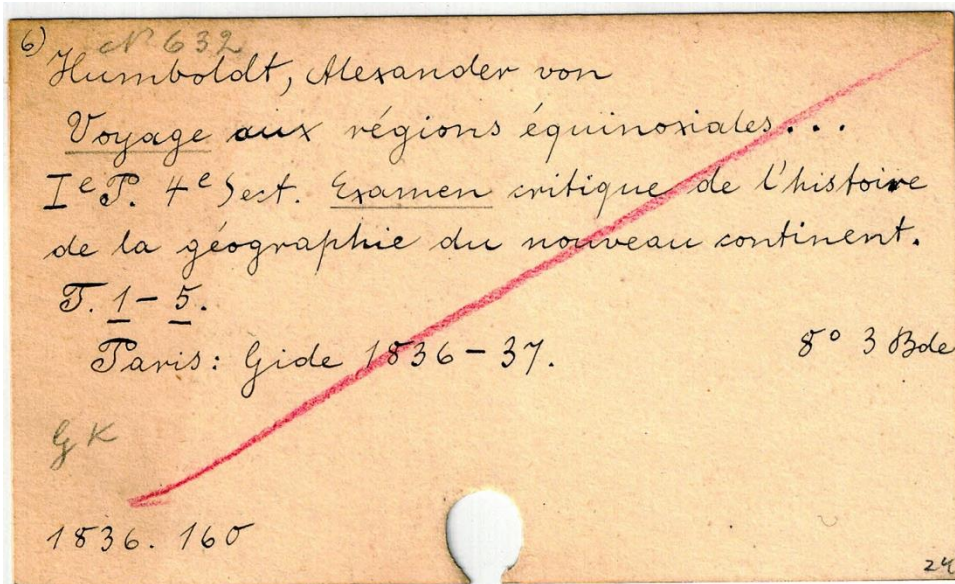 6) N 632
Humboldt, Alexander von
Voyage aux régions équinoxiales...
Iᵉ P. 4ᵉ Sect. Examen critique de l'histoire
de la géographie du nouveau continent.
T. 1-5.
Paris: Gide 1836-37. 8° 3 Bde
GK
1836. 160